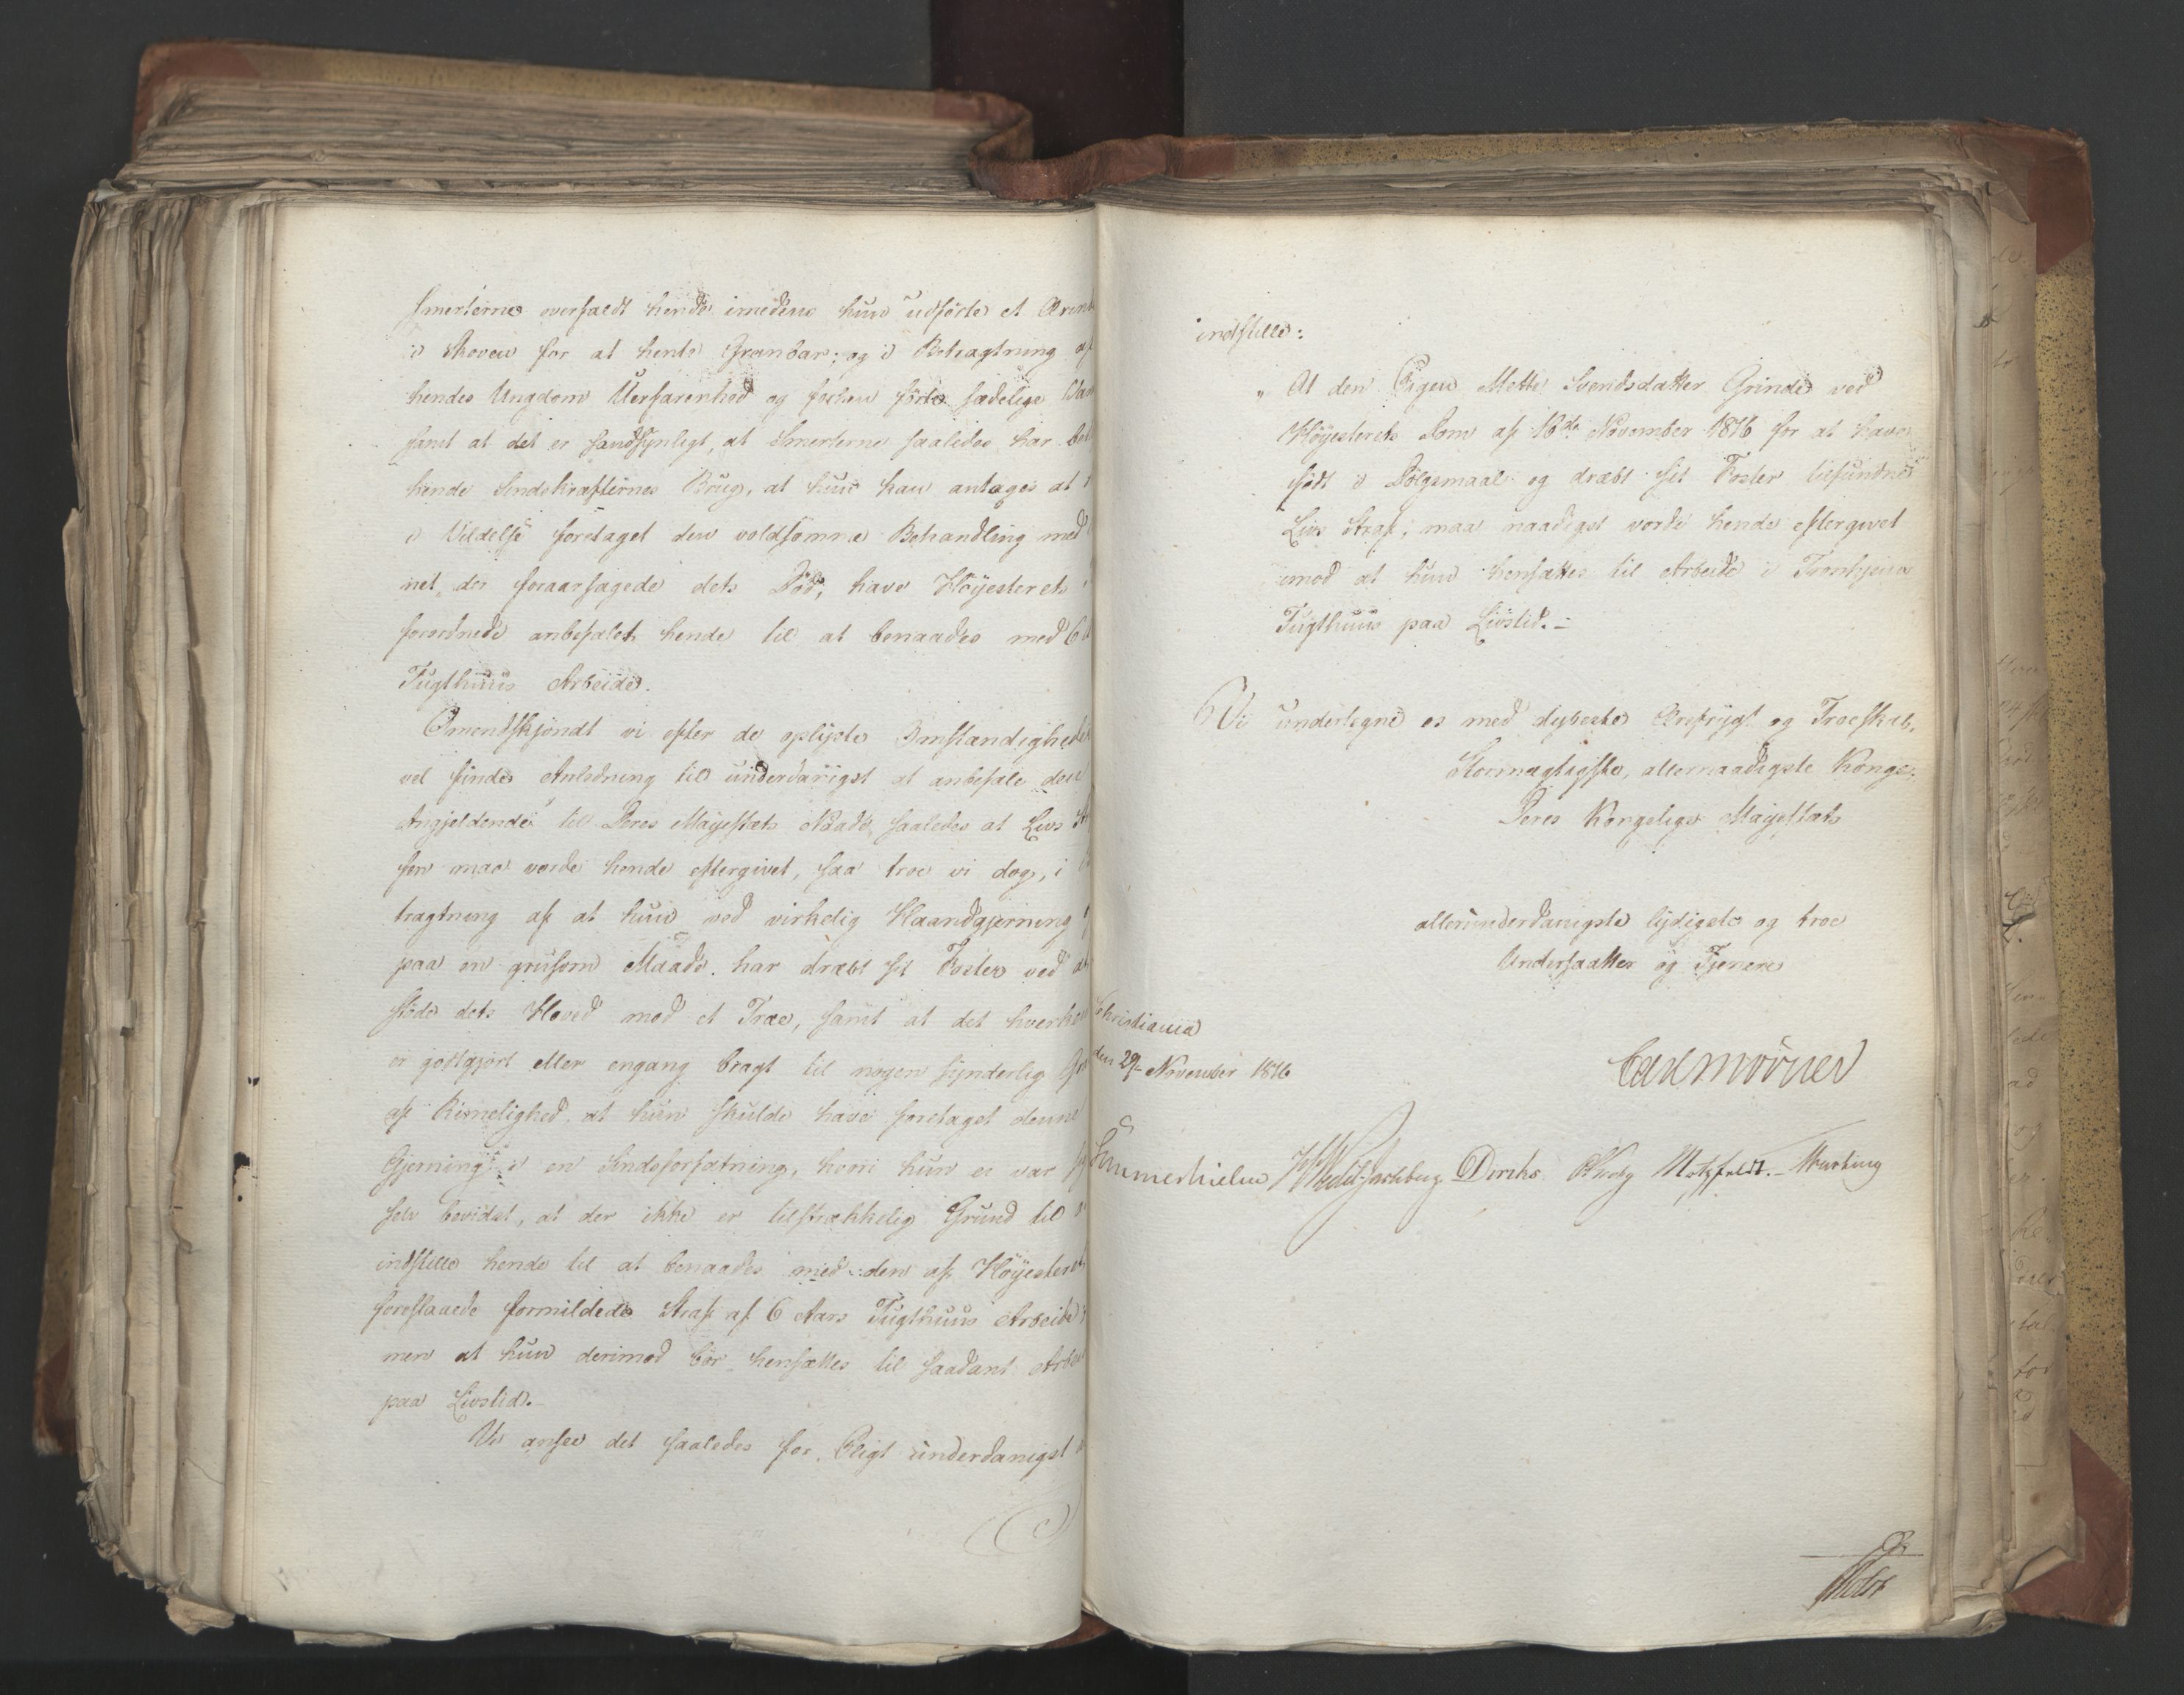 Smerterne overfaldt hende imedens hun udförte et
i Skoven for at hente Granbar; og i Betragtning af
hendes Ungdom Uerfarenhed og forhen förte sædelige
samt at det er sandsynligt, at Smerterne saaledes har
hende Sindskræfternes Brug, at hun kan antages at
i Vildelse foretaget den voldsomme Behandling med
net, der foraarsagede dets Död, have Höyesterets
forordnede anbefalet hende til at benaades med 6
Tugthuus Arbeide.
Omendskjöndt vi efter de oplyste Omstændigheder
vel finde Anledning til underdanigst at anbefale den
Angjeldende til Deres Mayestæts Naade, saaledes at Livs
fen maa vorde hende eftergivet, saa troe vi dog, i
tragtning af at hun ved virkelig Haandgjerning
paa en grusom Maade har dræbt sit Foster ved at
stöde dets Hoved mod et Træe, samt at det hverken
er godtgjort eller engang bragt til nogen synderlig
af Rimelighed, at hun skulde have foretaget denne
Gjerning i en Sindsforfatning, hvori hun ei var sig
selv bevidst, at der ikke er tilstrækkelig Grund til
indstille hende til at benaades med den af Höyesteret
foreslaaede formildede Straf af 6 Aars Tugthuus Arbeide
men at hun derimod bör hensættes til saadant
paa Livstid.
Vi ansee det saaledes for Pligt underdanigst
indstille:
" At den Pigen Mette Svendsdatter Grinde ved
Höyesterets Dom af 16de November 1816 for at have
födt i Dölgsmaal og dræbt sit Foster tilfundne
Livs Straf, maa naadigst vorde hende eftergivet
imod at hun hensættes til Arbeide i Tronhjems
Tugthuus paa Livstid.-
Vi undertegne os med dybeste Ærefrygt og Troeskab,
Stormægtigste, allernaadigste Konge,
Deres Kongelige Mayestæts
allerunderdanigste lydigste og troe
Undersaatter og Tjenere
Christiania
den 29 November 1816
Carl Mörner
Sommerhielm HWedelJarlsberg Diriks CKrog Motzfeldt. Thurting